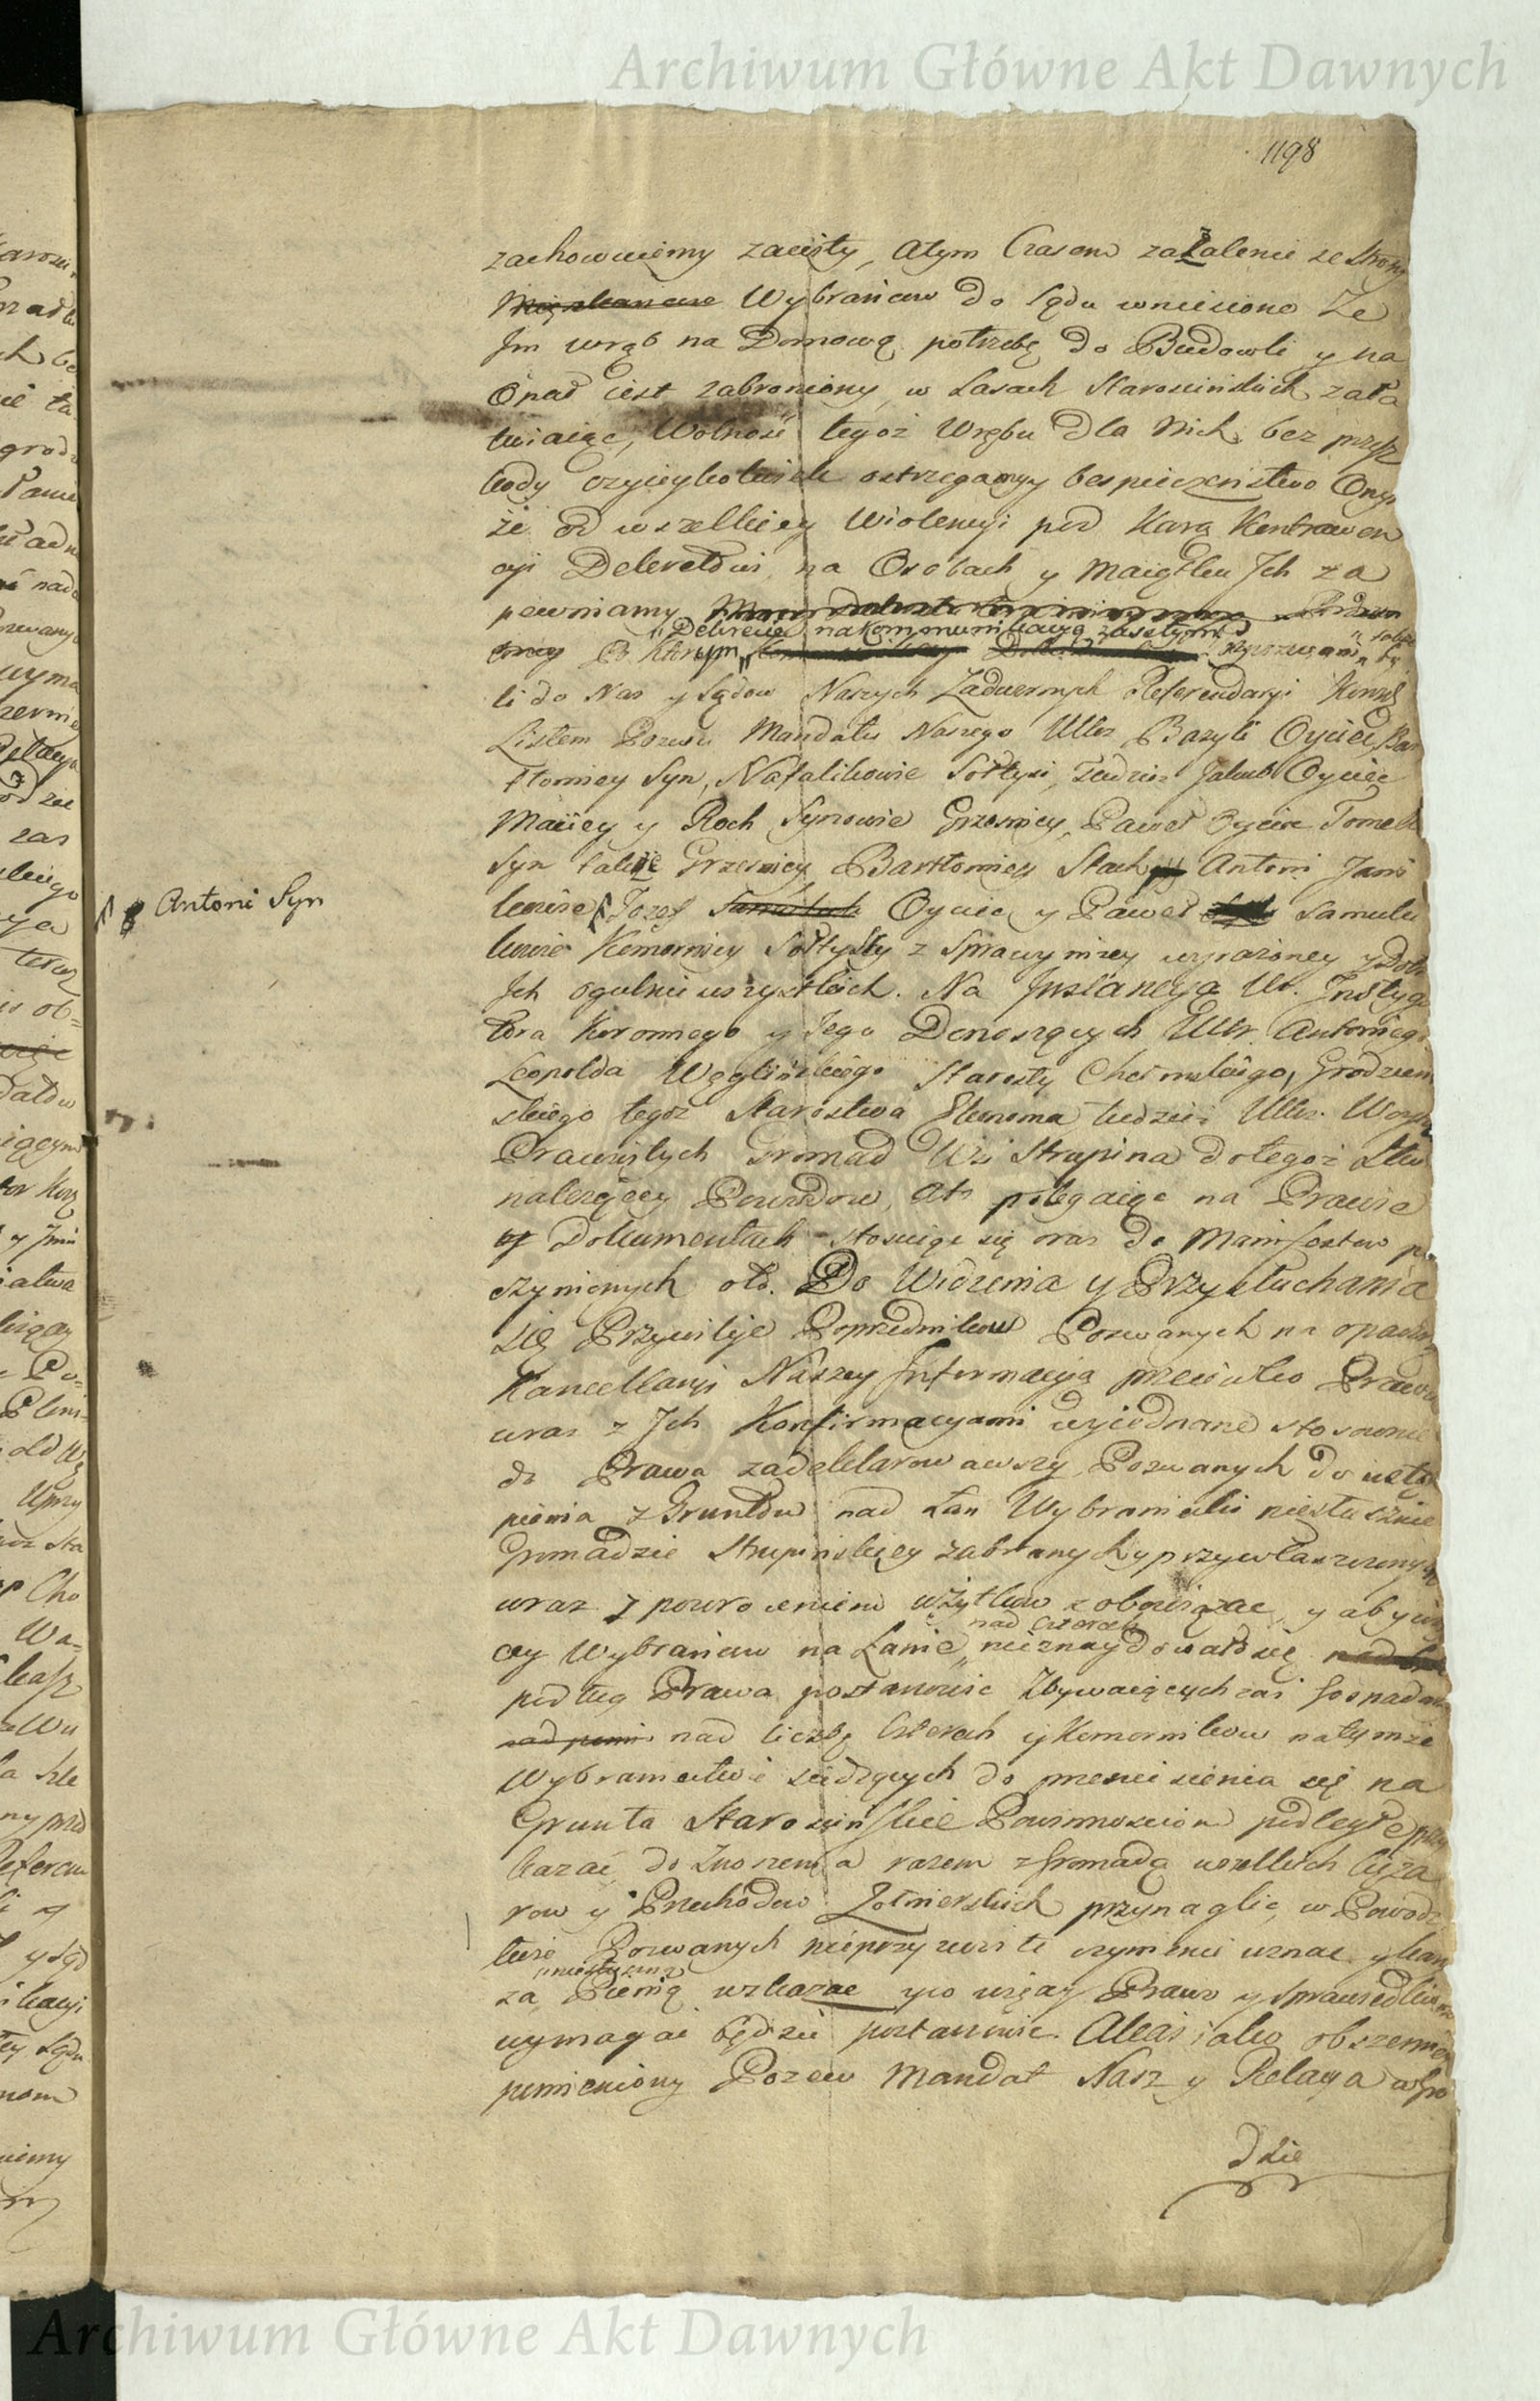 Archiwum Główne Akt Dawnych
1198
zachowuiemy zawisły, A tym Czasem zażalenie ze strony
Wybrańcow do Sądu wniesione Ze
Im wrąb na Domową potrzebę do Budowli y na
Opał iest zabroniony, w Lasach Starościńskich zała
twiaiąc, Wolność tegoż Wrębu dla Nich bez przesz
kody czyieykolwiek ostrzegamy bespieczeństwo Onych
że od wszelkiey Wiolencyi pod Karą Kontrawen
cyi Dekretowi na Osobach y Maiątku Ich za
pewniamy
Dekrecie na kommunikacyą zaszłym
Po którym przypozwani by
li do Nas y Sądow Naszych Zadwornych Referendaryi Koron
Listem Pozwu Mandatu Naszego Uttr Bazyli Oyciec, Bar
tłomiey Syn, Nafalikowie Sołtysi, tudzież Jakub Oyciec
Maciey y Roch Synowie Grzesnicy, Paweł Oyciec Tomek
Syn także Grzesnicy Bartłomiey Stach Antoni Jani
Antoni Syn
kowie Jozef Oyciec y Paweł Samulu
kowie Komornicy Sołtysi z Sprawy niżey wyrażoney y Dobr
Ich ogulnie wszystkich. Na Instancyą Ur. Instyga
tora Koronnego y Jego Donoszących Uttr. Antoniego
Leopolda Węglińskiego Starosty Chełmskiego, Grodzien
skiego tegoż Starostwa Ekonoma tudzież Uttr. Woyta
Pracowitych Gromad Wsi Strupina do tegoż Stwa
należącey Powodow, Ato polegaiąc na Prawie
y Dokumentach stosuiąc się oraz do Manifestow po
czynionych oto. Do Widzenia y Przysłuchania
się Przywileje Poprzednikow Pozwanych na opaczną
Kancellaryi Naszey Informacyą przeciwko Prawu
wraz z Ich Konfirmacyami wyiednane stosownie
do Prawa zadeklarowawszy Pozwanych do ustą
pienia z Gruntow nad Łan Wybraniecki niesłusznie
Gromadzie Strupińskiey zabranych y przywłaszczonych
wraz z powroceniem użytkow zobowiązac, y aby wię
nad czterech
cey Wybrańcow na Łanie nieznaydowało się
podług Prawa postanowić Zbywaiących zaś Gospodarzy
nad liczbę Czterech y Komornikow na tymże
Wybraniectwie siedzących do przeniesienia się na
Grunta Starościńskie Powinnościom podległe przy
kazać, do znoszenia razem z Gromadą wszelkich cięża
row y Przechodow Żołnierskich przynaglić, w Powodz
twie Pozwanych nieprzyzwoite czynienie uznać y karę
niesłuszną
za Pienią wskazac y co więcey Prawo y sprawiedliwość
wymagac będzie postanowic. Aleas iako obszerniey
pomieniony Pozew Mandat Nasz y Relacya w Gro
dzie
Archiwum Główne Akt Dawnych